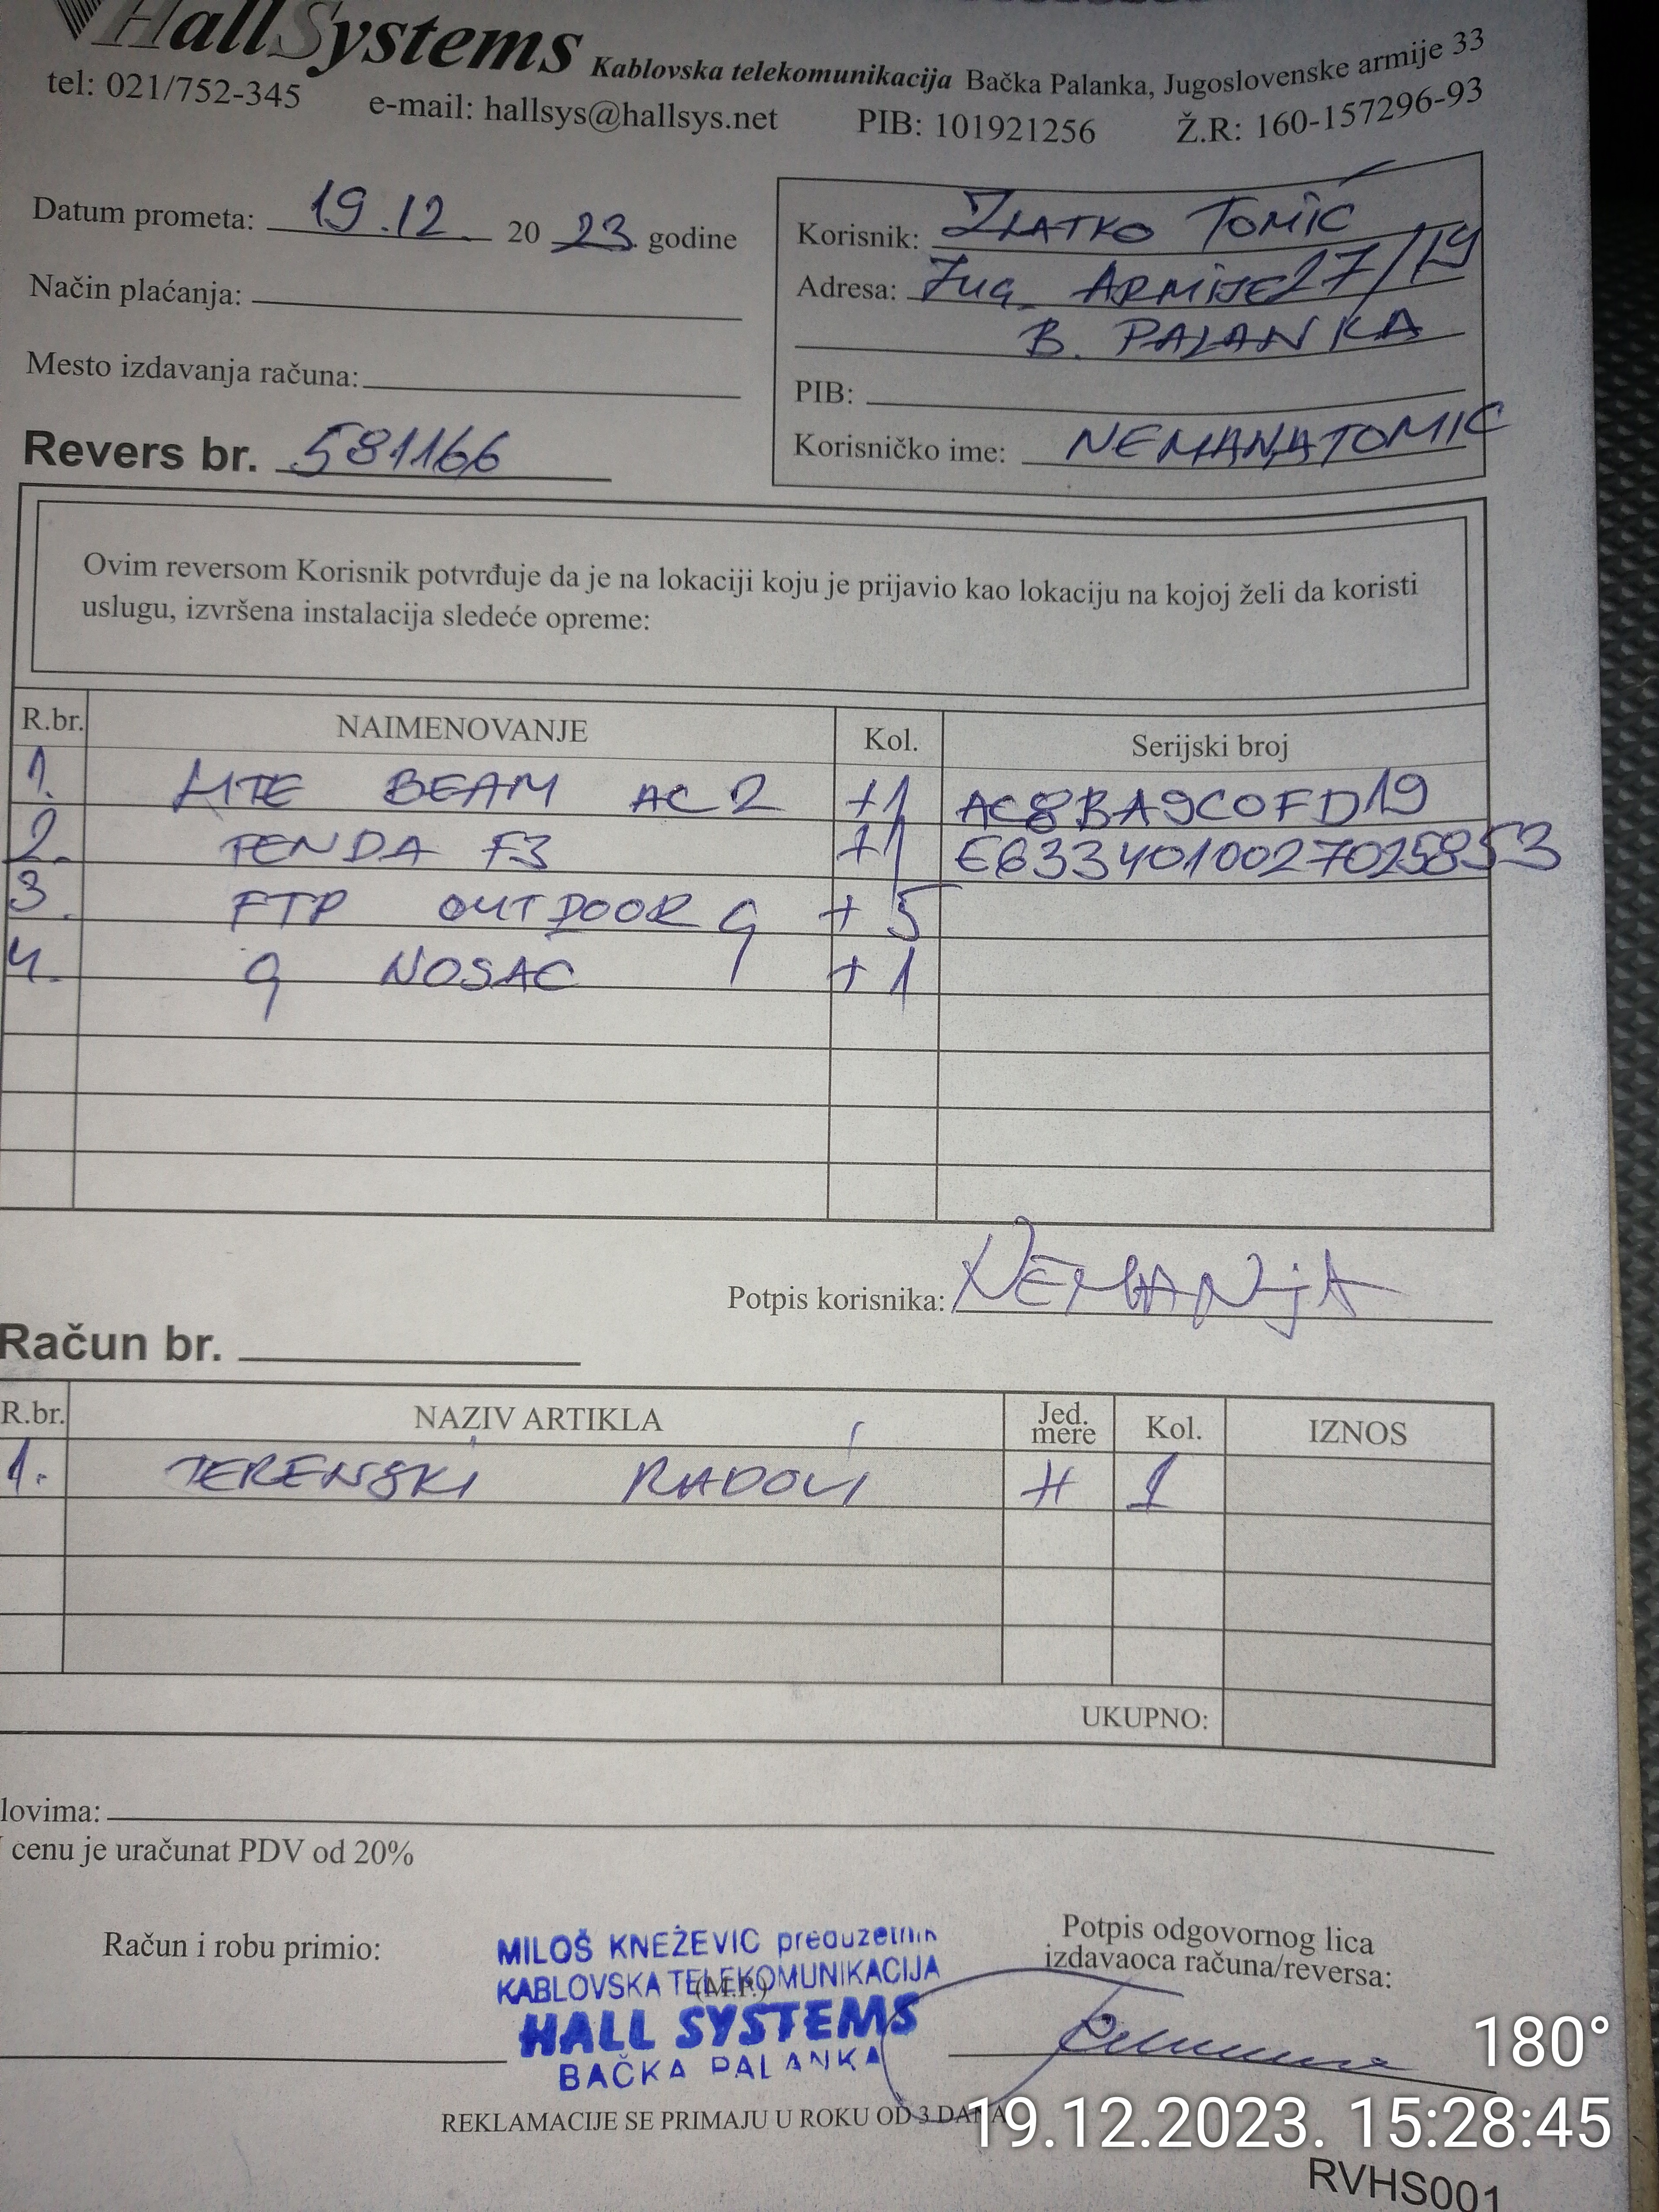 HallSystems Kablovska telekomunikacija Bačka Palanka, Jugoslovenske armije 33
tel: 021/752-345 e-mail: hallsys@hallsys.net PIB: 101921256 Ž.R: 160-157296-93
Datum prometa: 19.12. 20 23. godine
Način plaćanja:
Mesto izdavanja računa:
Revers br. 581166
Korisnik: ZLATKO TOMIĆ
Adresa: Jug. ARMIJE 27/19
B. PALANKA
PIB:
Korisničko ime: NEMANJATOMIC
Ovim reversom Korisnik potvrđuje da je na lokaciji koju je prijavio kao lokaciju na kojoj želi da koristi
uslugu, izvršena instalacija sledeće opreme:
R.br. NAIMENOVANJE Kol. Serijski broj
1. LITE BEAM AC 2 +1 AC8BA9C0FD19
2. TENDA F3 +1 E6334010027025853
3. FTP OUTDOOR q +5
4. q NOSAC +1
Potpis korisnika: NEMANjA
Račun br.
R.br. NAZIV ARTIKLA Jed. mere Kol. IZNOS
1. TERENSKI RADOVI H 1
UKUPNO:
lovima:
cenu je uračunat PDV od 20%
Račun i robu primio:
MILOŠ KNEŽEVIC preduzetnik
KABLOVSKA TELEKOMUNIKACIJA
(M.P.)
HALL SYSTEMS
BAČKA PALANKA
Potpis odgovornog lica
izdavaoca računa/reversa:
REKLAMACIJE SE PRIMAJU U ROKU OD 3 DANA
180°
19.12.2023. 15:28:45
RVHS001